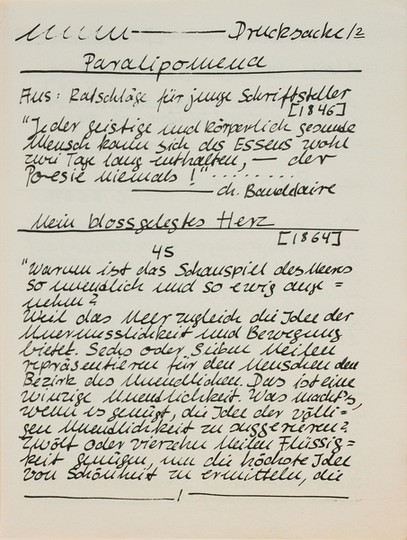 Drucksache 1/2
Paralipomena
Aus: Ratschläge für junge Schriftsteller
[1846]
"Jeder geistig und körperlich gesunde
Mensch kann sich des Essens wohl
zwei Tage lang enthalten, — der
Poesie niemals!"........
ch. Baudelaire
Mein blossgelegtes Herz
[1864]
45
"Warum ist das Schauspiel des Meeres
so unendlich und so ewig ange=
nehm?
Weil das Meer zugleich die Idee der
Unermesslichkeit und Bewegung
bietet. Sechs oder sieben Meilen
repräsentieren für den Menschen den
Bezirk des Unendlichen. Das ist eine
winzige Unendlichkeit. Was macht's,
wenn es genügt, die Idee der völli=
gen Unendlichkeit zu suggerieren?
Zwölf oder vierzehn Meilen Flüssig=
keit genügen, um die höchste Idee
von Schönheit zu ermitteln, die
1